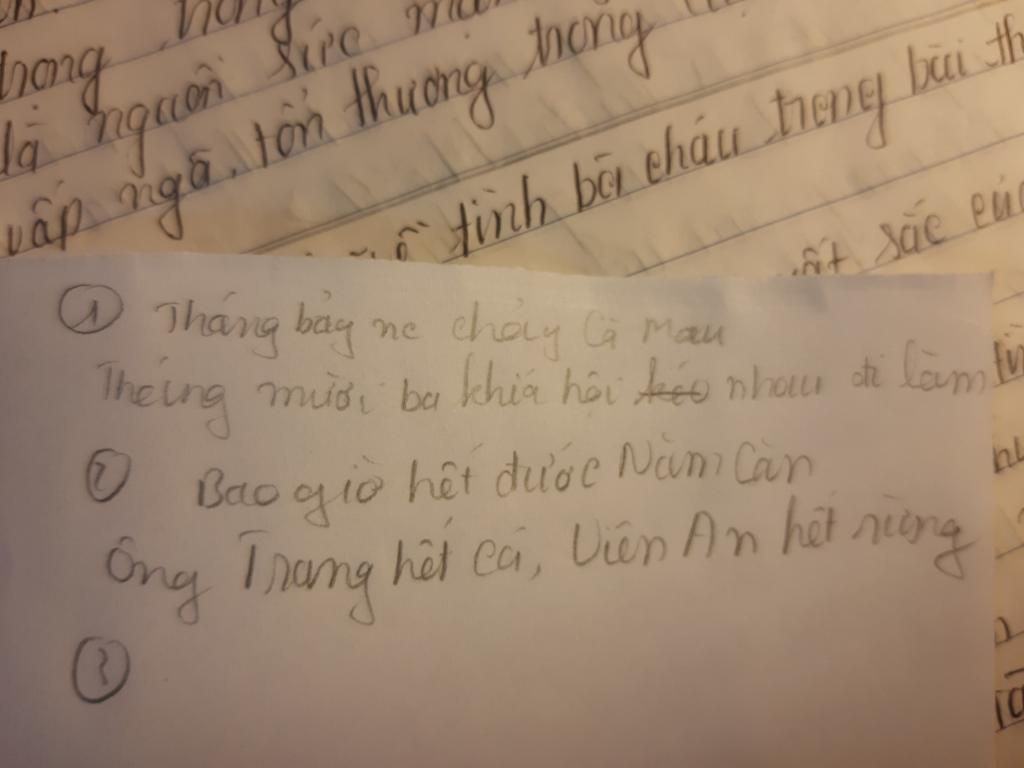 trong
là nguồn sức
vấp ngã, tổn thương trong
tình bà cháu trong bài th
sắc
① Tháng bảy nc chảy Cà Mau
Tháng mười ba khía hội kéo nhau đi làm
② Bao giờ hết đước Năm Căn
Ông Trang hết cá, Viên An hết rừng
③